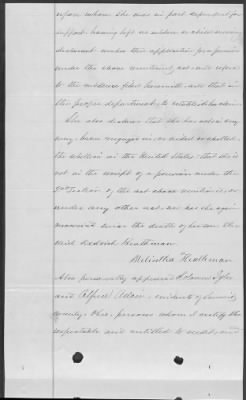 upon whom she was in part dependent for
support having left no widow or child surviving
declarant makes this application for a pension
under the above mentioned act and refers
to the evidence filed herewith and that in
the proper department to establish her claim
She also declares that she has not in any
way been engaged in, or aided or abetted
the rebellion in the United States; that she is
not in the receipt of a pension under the
2nd Section of the act above mentioned or
under any other act, nor has she again
married since the death of her son the
said Heathman
Malintha Heathman
Also personally appeared
and Alfred Adair, residents of
County, Ohio, persons whom I certify to be
respectable and entitled to credit, and